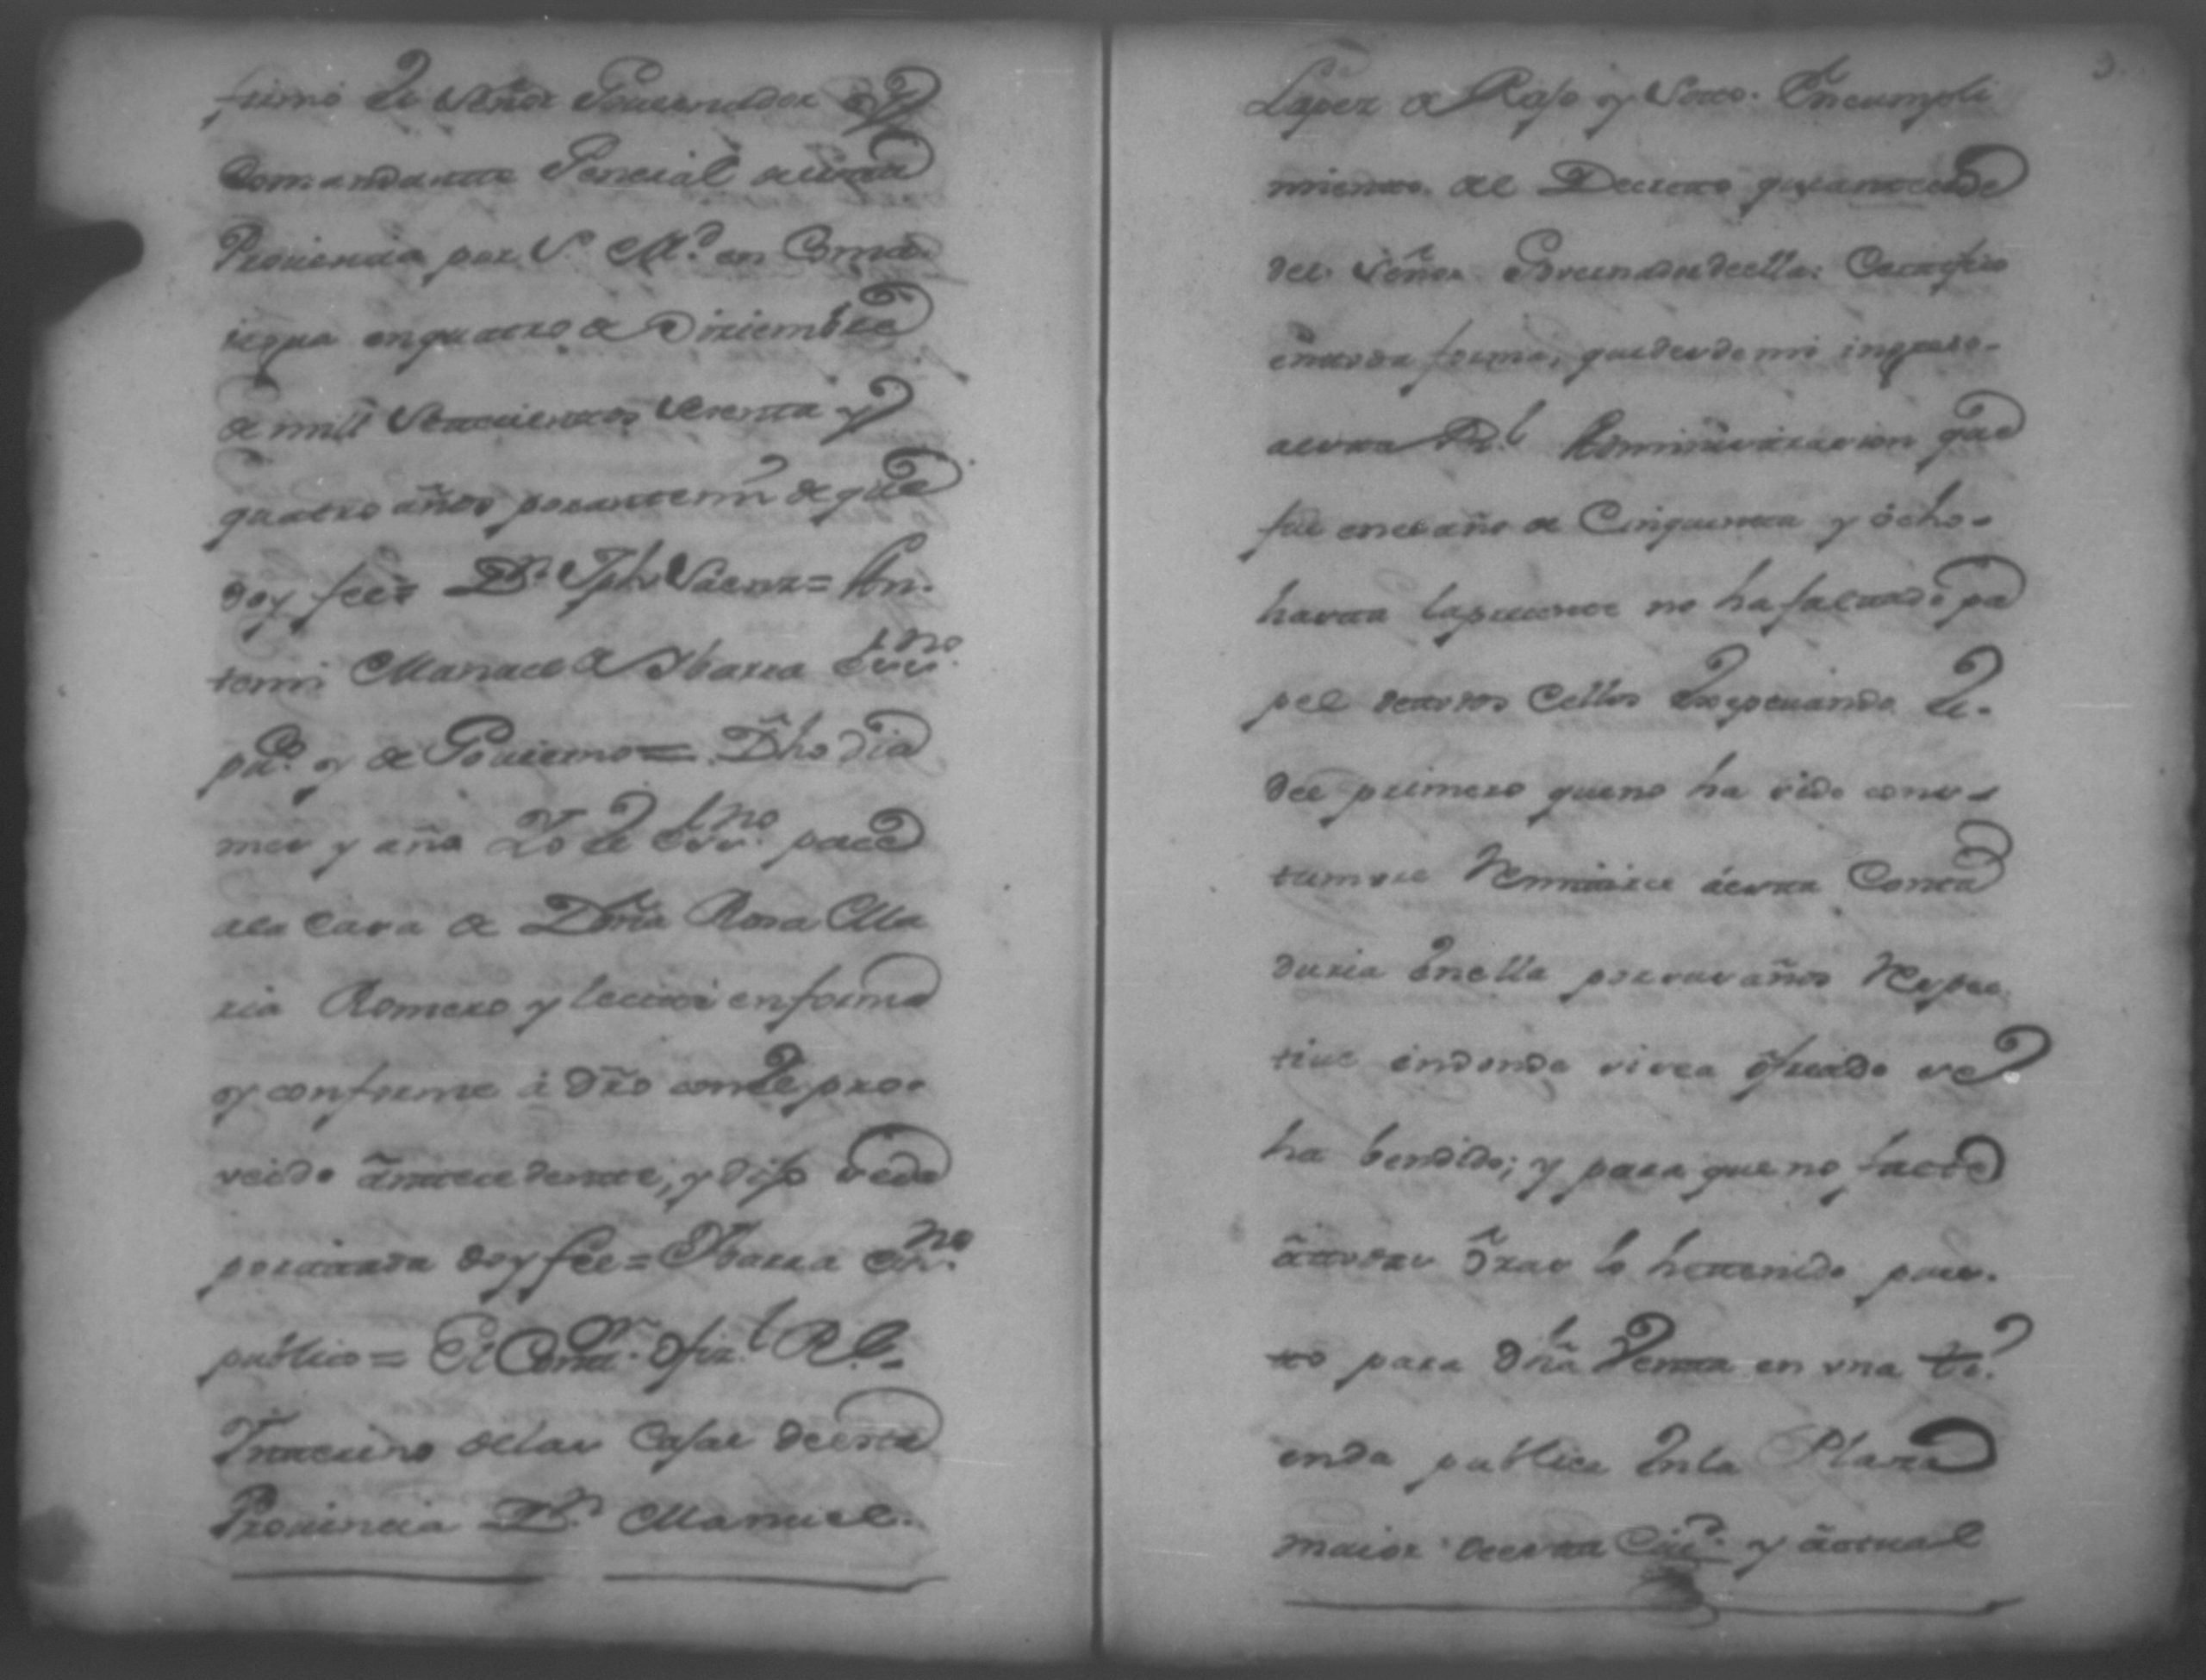 firmó El Señor Gouernador y
Comandante General de esta
Prouincia por S. M.d en Coma
iagua en quatro de Diziembre
de mill Setecientos Sesenta y
quatro años por ante mi de que
doy fee = Dn. Jph. Saenz = An.
temi Manuel de Ybarra Essno.
pu.co y de Gouierno = Dho dia
mes y año Yo El Essno. pacé
ala casa de Doña Rosa Ma
ria Romero y le cité en forma
y conforme á dro con El pro.
veido antecedente, y dijo Se da
por citada doy fee = Ybarra Essno.
público = El Contd.or Ofiz.l Rl.
Ynterino de las Cajas de esta
Prouincia Dn. Manuel.
3
Lopez de Rajo y Soto. En cumpli
miento del Decreto que antecede
del Señor Gouernador de ella: Certifico
en toda forma, que desde mi ingreso-
a esta Rl. Administracion que
fue en el año de Cinquenta y ócho-
hasta la presente no ha faltado pa
pel de todos Cellos Exepctuando El.
del primero que no ha sido cons-
tumbre Remitirce á esta Conta
duria En ella por sus años Respec
tiue en donde vivea ofuido se
ha bendido; y para que no falte
á todas oras lo he tenido pues.
to para dha Venta en una ti.
enda publica En la Plaza
maior de esta Ciud. y actual